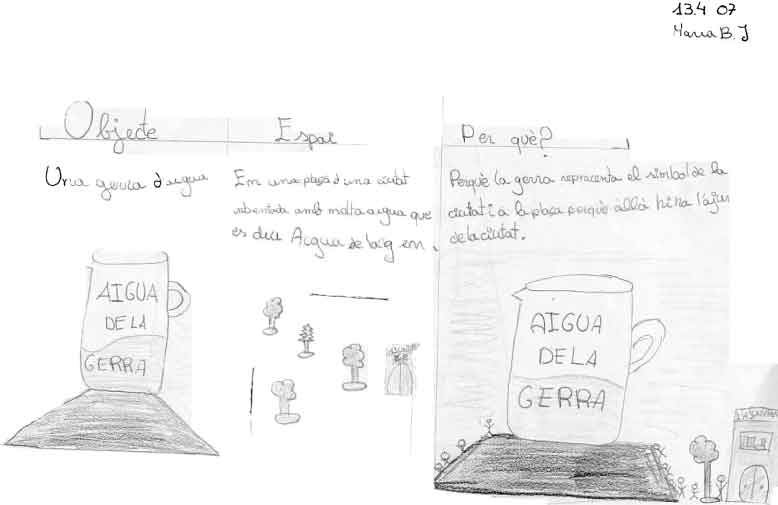 13.4 07
Maria B. J
Objecte
Espai
Per què?
Una gerra d'aigua
En una plaça d'una ciutat
inventada amb molta aigua que
es diu Aigua de
Perquè la gerra representa el simbol de la
ciutat i a la plaça perquè allà hi ha l'ajun
de la ciutat.
AIGUA
DE LA
GERRA
AIGUA
DE LA
GERRA